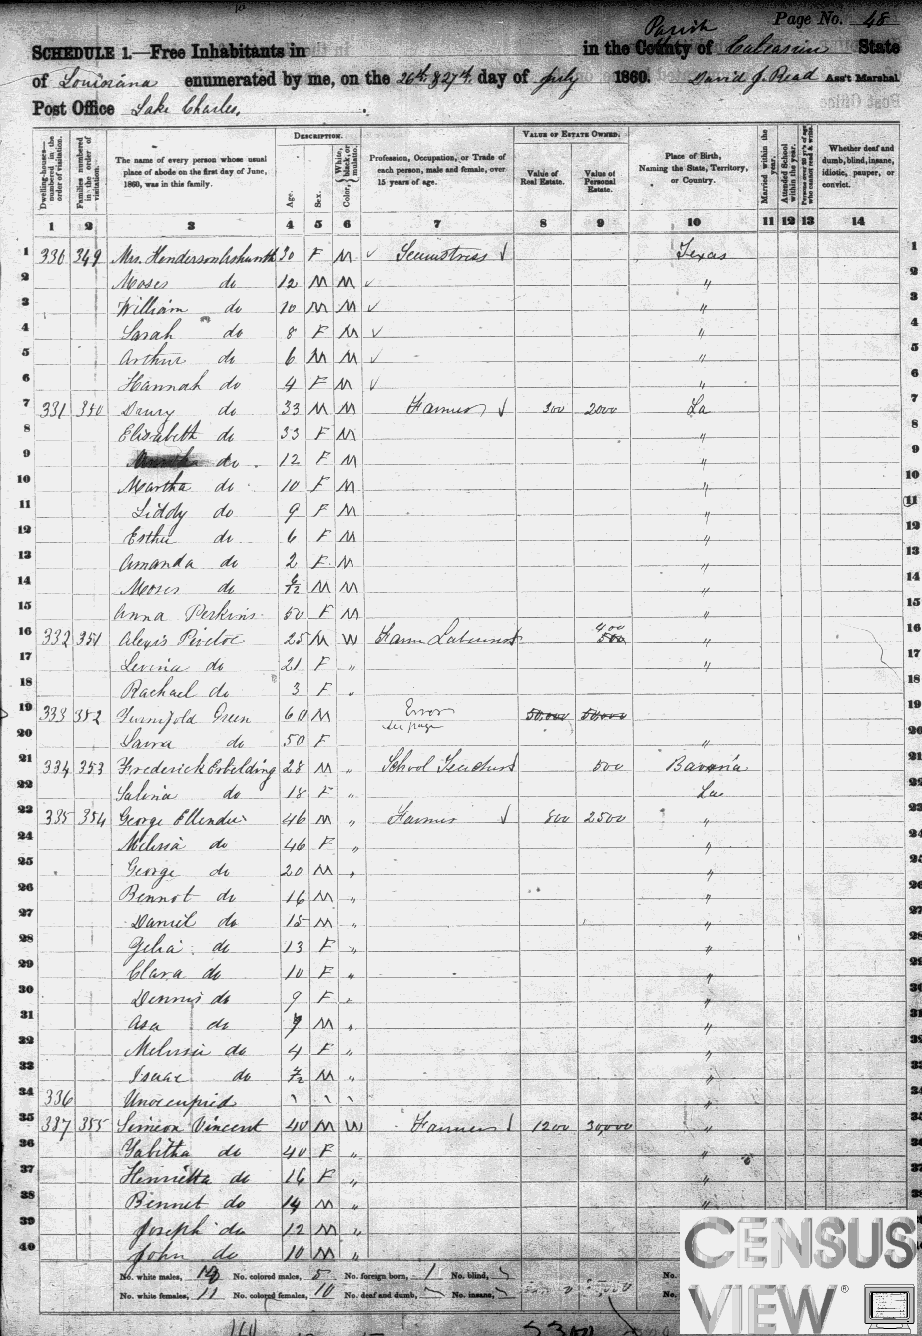 Page No. 48
SCHEDULE 1.—Free Inhabitants in in the County of Parish Calcasieu State
of Louisiana enumerated by me, on the 26th & 27th day of July 1860. David J. Read Ass't Marshal
Post Office Lake Charles,
DESCRIPTION. VALUE OF ESTATE OWNED.
Dwelling-houses—numbered in the order of visitation.
Families numbered in the order of visitation.
The name of every person whose usual place of abode on the first day of June, 1860, was in this family.
Age.
Sex.
Color, White, black, or mulatto.
Profession, Occupation, or Trade of each person, male and female, over 15 years of age.
Value of Real Estate.
Value of Personal Estate.
Place of Birth, Naming the State, Territory, or Country.
Married within the year.
Attended School within the year.
Persons over 20 y'rs of age who cannot read & write.
Whether deaf and dumb, blind, insane, idiotic, pauper, or convict.
1 2 3 4 5 6 7 8 9 10 11 12 13 14
1 330 349 Mrs. Henderson 30 F M Seamstress Texas 1
2 Moses do 12 M M " 2
3 William do 10 M M " 3
4 Sarah do 8 F M " 4
5 Arthur do 6 M M " 5
6 Hannah do 4 F M " 6
7 331 350 Drury do 33 M M Farmer 300 2000 La 7
8 Elisabeth do 33 F M " 8
9 do 12 F M " 9
10 Martha do 10 F M " 10
11 Liddy do 9 F M " 11
12 Esther do 6 F M " 12
13 Amanda do 2 F M " 13
14 Moses do M M " 14
15 Anna Perkins 50 F M " 15
16 332 351 Alexis 25 M W Farm Laborer 400 500 " 16
17 Levina do 21 F " " 17
18 Rachael do 3 F " 18
19 333 352 Green 60 M Error see page 50,000 50,000 19
20 do 50 F " 20
21 334 353 Frederick Erbelding 28 M " School Teacher 500 Bavaria 21
22 Salina do 18 F " La 22
23 335 354 George Ellender 46 M " Farmer 800 2500 " 23
24 Melissa do 46 F " " 24
25 George do 20 M " " 25
26 Bennot do 16 M " " 26
27 Daniel do 15 M " " 27
28 do 13 F " " 28
29 Clara do 10 F " " 29
30 Dennis do 9 F " " 30
31 Asa do 7 M " " 31
32 Melissa do 4 F " " 32
33 Isaac do M " " 33
34 336 Unoccupied " 34
35 337 355 Simeon Vincent 40 M W Farmer 1200 30,000 " 35
36 Tabitha do 40 F " " 36
37 Henrietta do 16 F " " 37
38 Bennet do 14 M " " 38
39 Joseph do 12 M "
40 John do 10 M "
No. white males, No. colored males, 5 No. foreign born, 1 No. blind, No.
No. white females, 11 No. colored females, 10 No. deaf and dumb, No. insane, No.
CENSUS
VIEW®